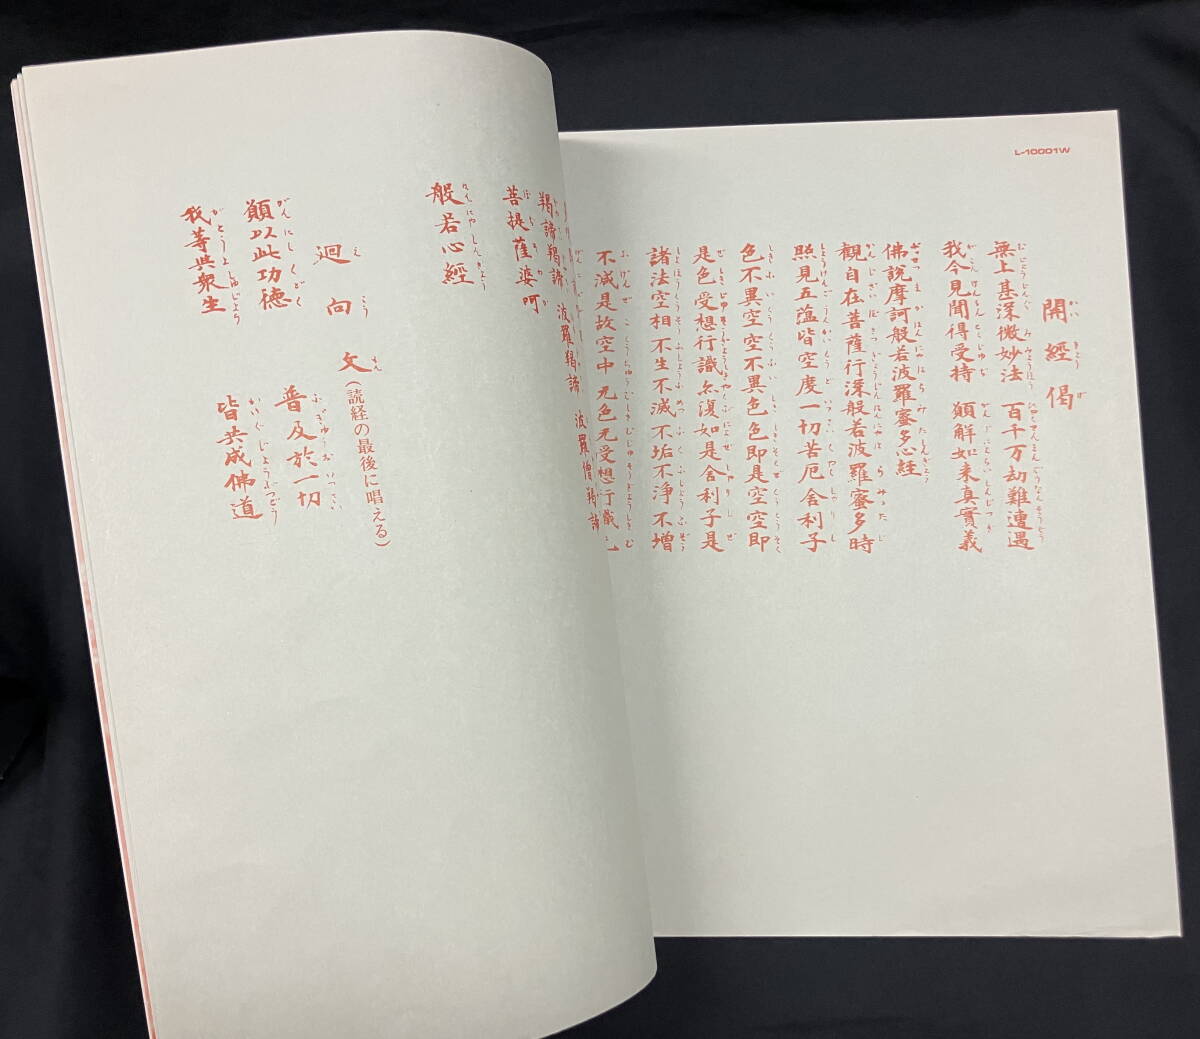 L-10001W
開經偈
無上甚深微妙法 百千万劫難遭遇
我今見聞得受持 願解如来真實義
佛説摩訶般若波羅蜜多心経
觀自在菩薩行深般若波羅蜜多時
照見五蘊皆空度一切苦厄舎利子
色不異空空不異色色即是空空即
是色受想行識亦復如是舎利子是
諸法空相不生不滅不垢不浄不増
不減是故空中无色无受想行識
羯諦羯諦 波羅羯諦 波羅僧羯諦
菩提薩婆呵
般若心經
廻向文(読経の最後に唱える)
願以此功徳 普及於一切
我等與衆生 皆共成佛道